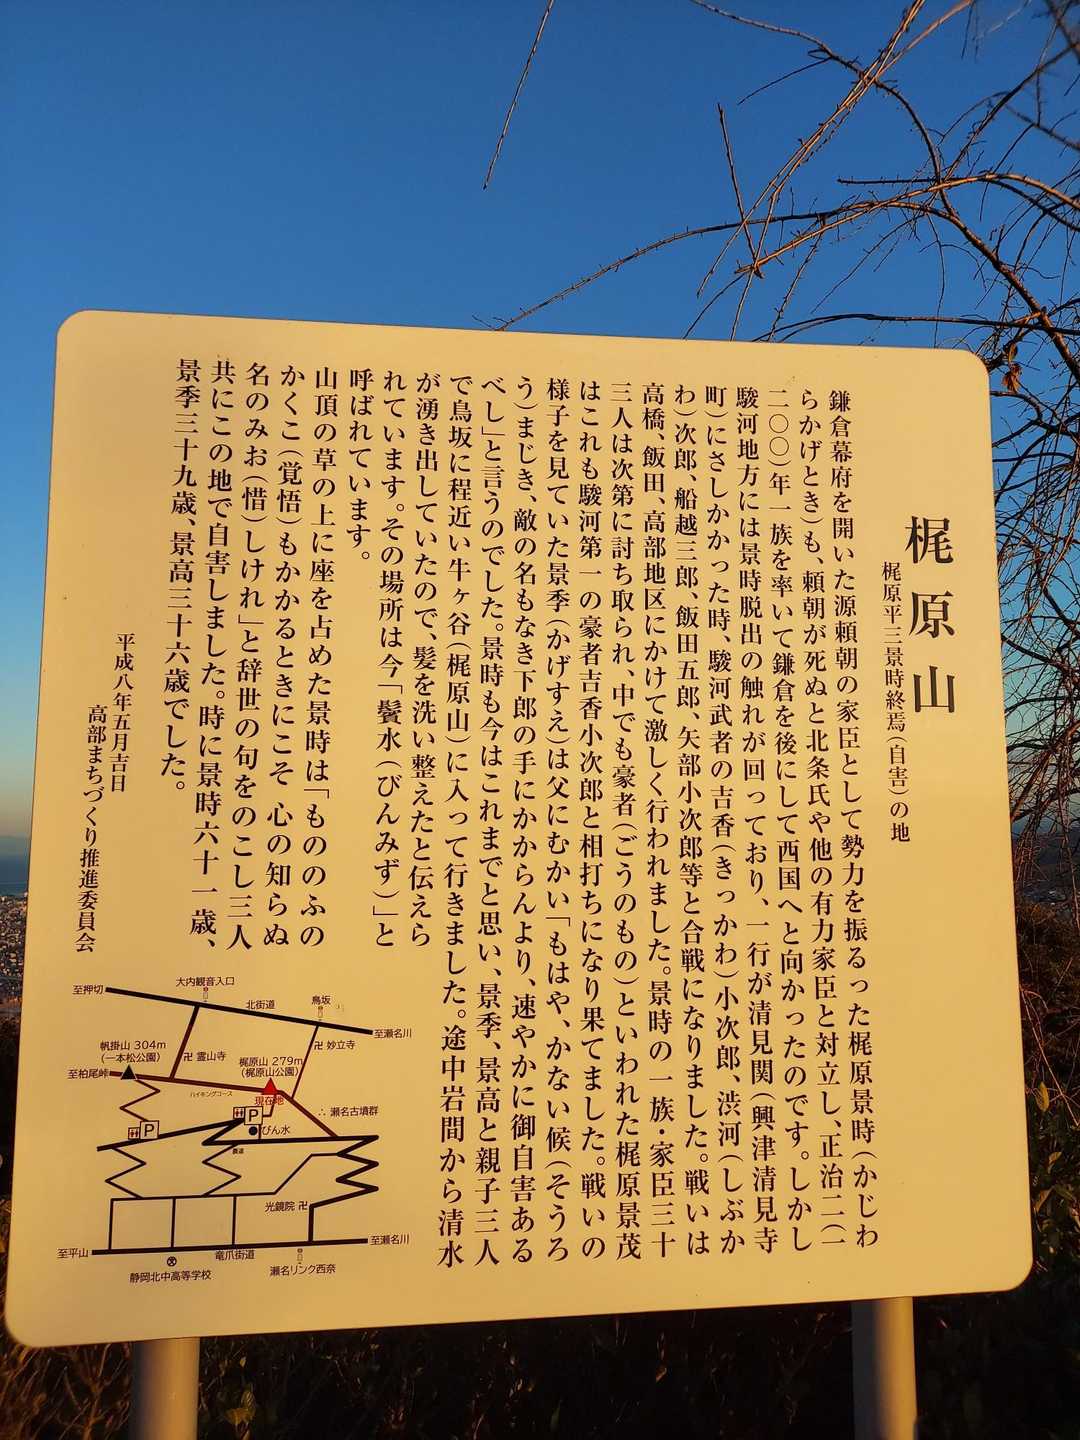 梶原山
梶原平三景時終焉(自害)の地
鎌倉幕府を開いた源頼朝の家臣として勢力を振るった梶原景時(かじわ
らかげとき)も、頼朝が死ぬと北条氏や他の有力家臣と対立し、正治二(一
二〇〇)年一族を率いて鎌倉を後にして西国へと向かったのです。しかし
駿河地方には景時脱出の触れが回っており、一行が清見関(興津清見寺
町)にさしかかった時、駿河武者の吉香(きっかわ)小次郎、渋河(しぶか
わ)次郎、船越三郎、飯田五郎、矢部小次郎等と合戦になりました。戦いは
高橋、飯田、高部地区にかけて激しく行われました。景時の一族・家臣三十
三人は次第に討ち取られ、中でも豪者(ごうのもの)といわれた梶原景茂
はこれも駿河第一の豪者吉香小次郎と相打ちになり果てました。戦いの
様子を見ていた景季(かげすえ)は父にむかい「もはや、かない候(そうろ
う)まじき、敵の名もなき下郎の手にかからんより、速やかに御自害ある
べし」と言うのでした。景時も今はこれまでと思い、景季、景高と親子三人
で鳥坂に程近い牛ヶ谷(梶原山)に入って行きました。途中岩間から清水
が湧き出していたので、髪を洗い整えたと伝えら
れています。その場所は今「鬢水(びんみず)」と
呼ばれています。
山頂の草の上に座を占めた景時は「もののふの
かくこ(覚悟)もかかるときにこそ 心の知らぬ
名のみお(惜)しけれ」と辞世の句をのこし三人
共にこの地で自害しました。時に景時六十一歳、
景季三十九歳、景高三十六歳でした。
平成八年五月吉日
高部まちづくり推進委員会
大内観音入口
至押切
北街道
鳥坂
至瀬名川
帆掛山 304m
(一本松公園)
卍 霊山寺
卍 妙立寺
至柏尾峠
梶原山 279m
(梶原山公園)
ハイキングコース
現在地
∴ 瀬名古墳群
P
P
びん水
光鏡院 卍
至平山
竜爪街道
至瀬名川
静岡北中高等学校
瀬名リンク西奈